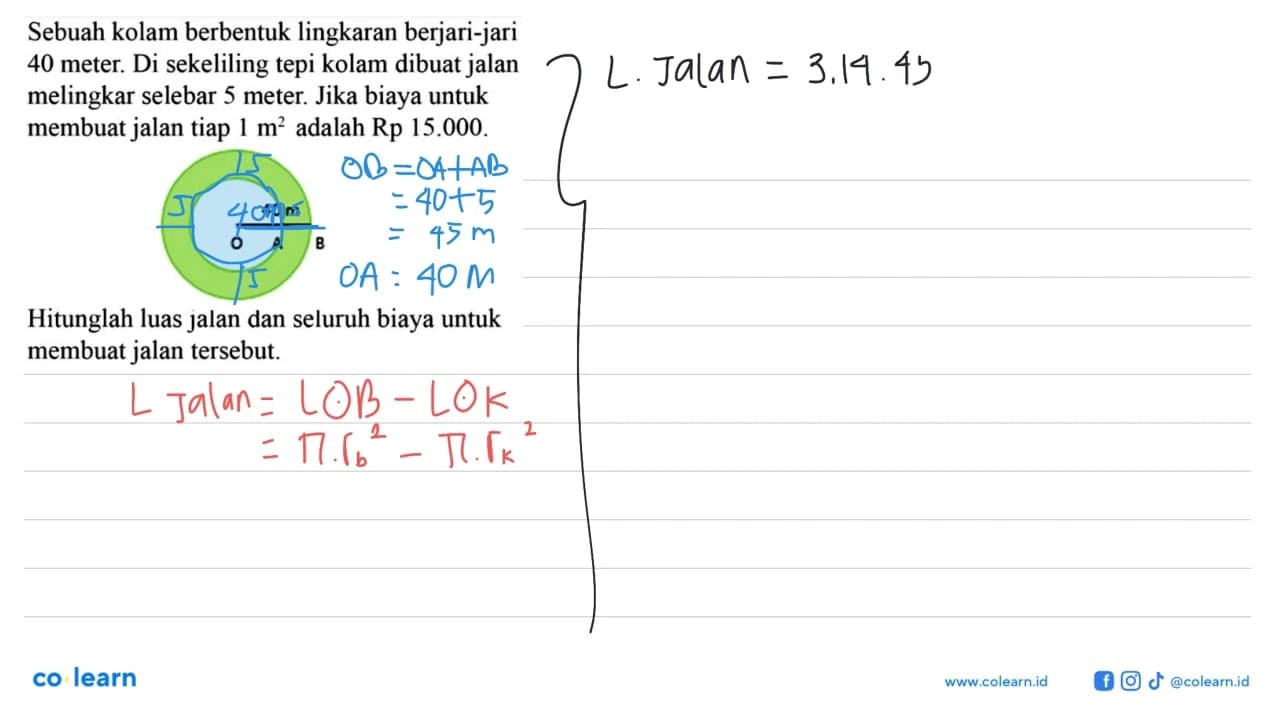 Sebuah kolam berbentuk lingkaran berjari-jari
40 meter. Di sekeliling tepi kolam dibuat jalan
melingkar selebar 5 meter. Jika biaya untuk
membuat jalan tiap 1 m² adalah Rp 15.000.
5
5
40 m
O A B
5
OB = OA + AB
= 40 + 5
= 45 m
OA : 40 M
Hitunglah luas jalan dan seluruh biaya untuk
membuat jalan tersebut.
L Jalan = L⊙B - L⊙K
= π.r_b² - π.r_k²
L. Jalan = 3,14.45
co learn
www.colearn.id
@colearn.id